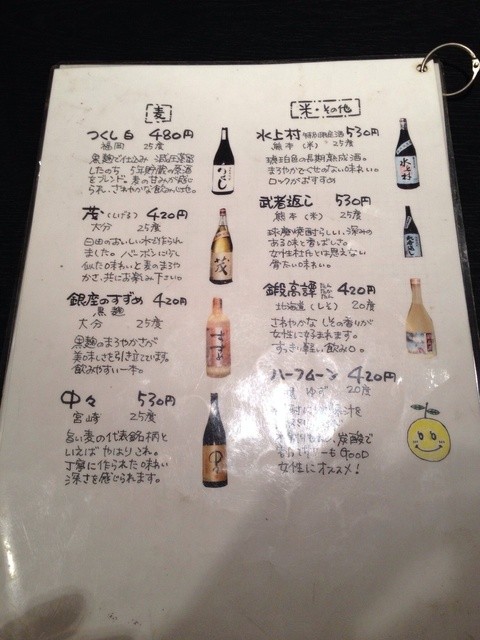 麦
つくし 白 480円
福岡 25度
黒麹で仕込み 減圧蒸留
したのち、5年貯蔵の原酒
をブレンド。麦の甘みが感じ
られ、さわやかな飲み心地。
茂(しげる) 420円
大分 25度
臼田のおいしい水で作られ
ました。バーボンにすらし
似た味わいと麦のまろや
かさ、共にお楽しみ下さい。
銀座のすずめ 420円
黒麹
大分 25度
黒麹のまろやかさが
美味しさを引き立ています。
飲みやすい一本。
中々 530円
宮崎 25度
旨い麦の代表銘柄と
いえばやはりこれ。
丁寧に作られた味わい
深さを感じられます。
米・その他
水上村 特別限定酒 530円
熊本(米) 25度
琥珀色の長期熟成酒。
まろやかでくせのない味わい。
ロックがおすすめ
武者返し 530円
熊本(米) 25度
球磨焼酎らしい、深みの
ある味と香ばしさ。
女性杜氏とは思えない
骨太い味わい。
鍛高譚 420円
北海道(しそ) 20度
さわやかな しその香りが
女性に好まれます。
すっきり軽い飲み口。
ハーフムーン 420円
ゆず 20度
果汁
炭酸で
もGOOD
女性にオススメ!